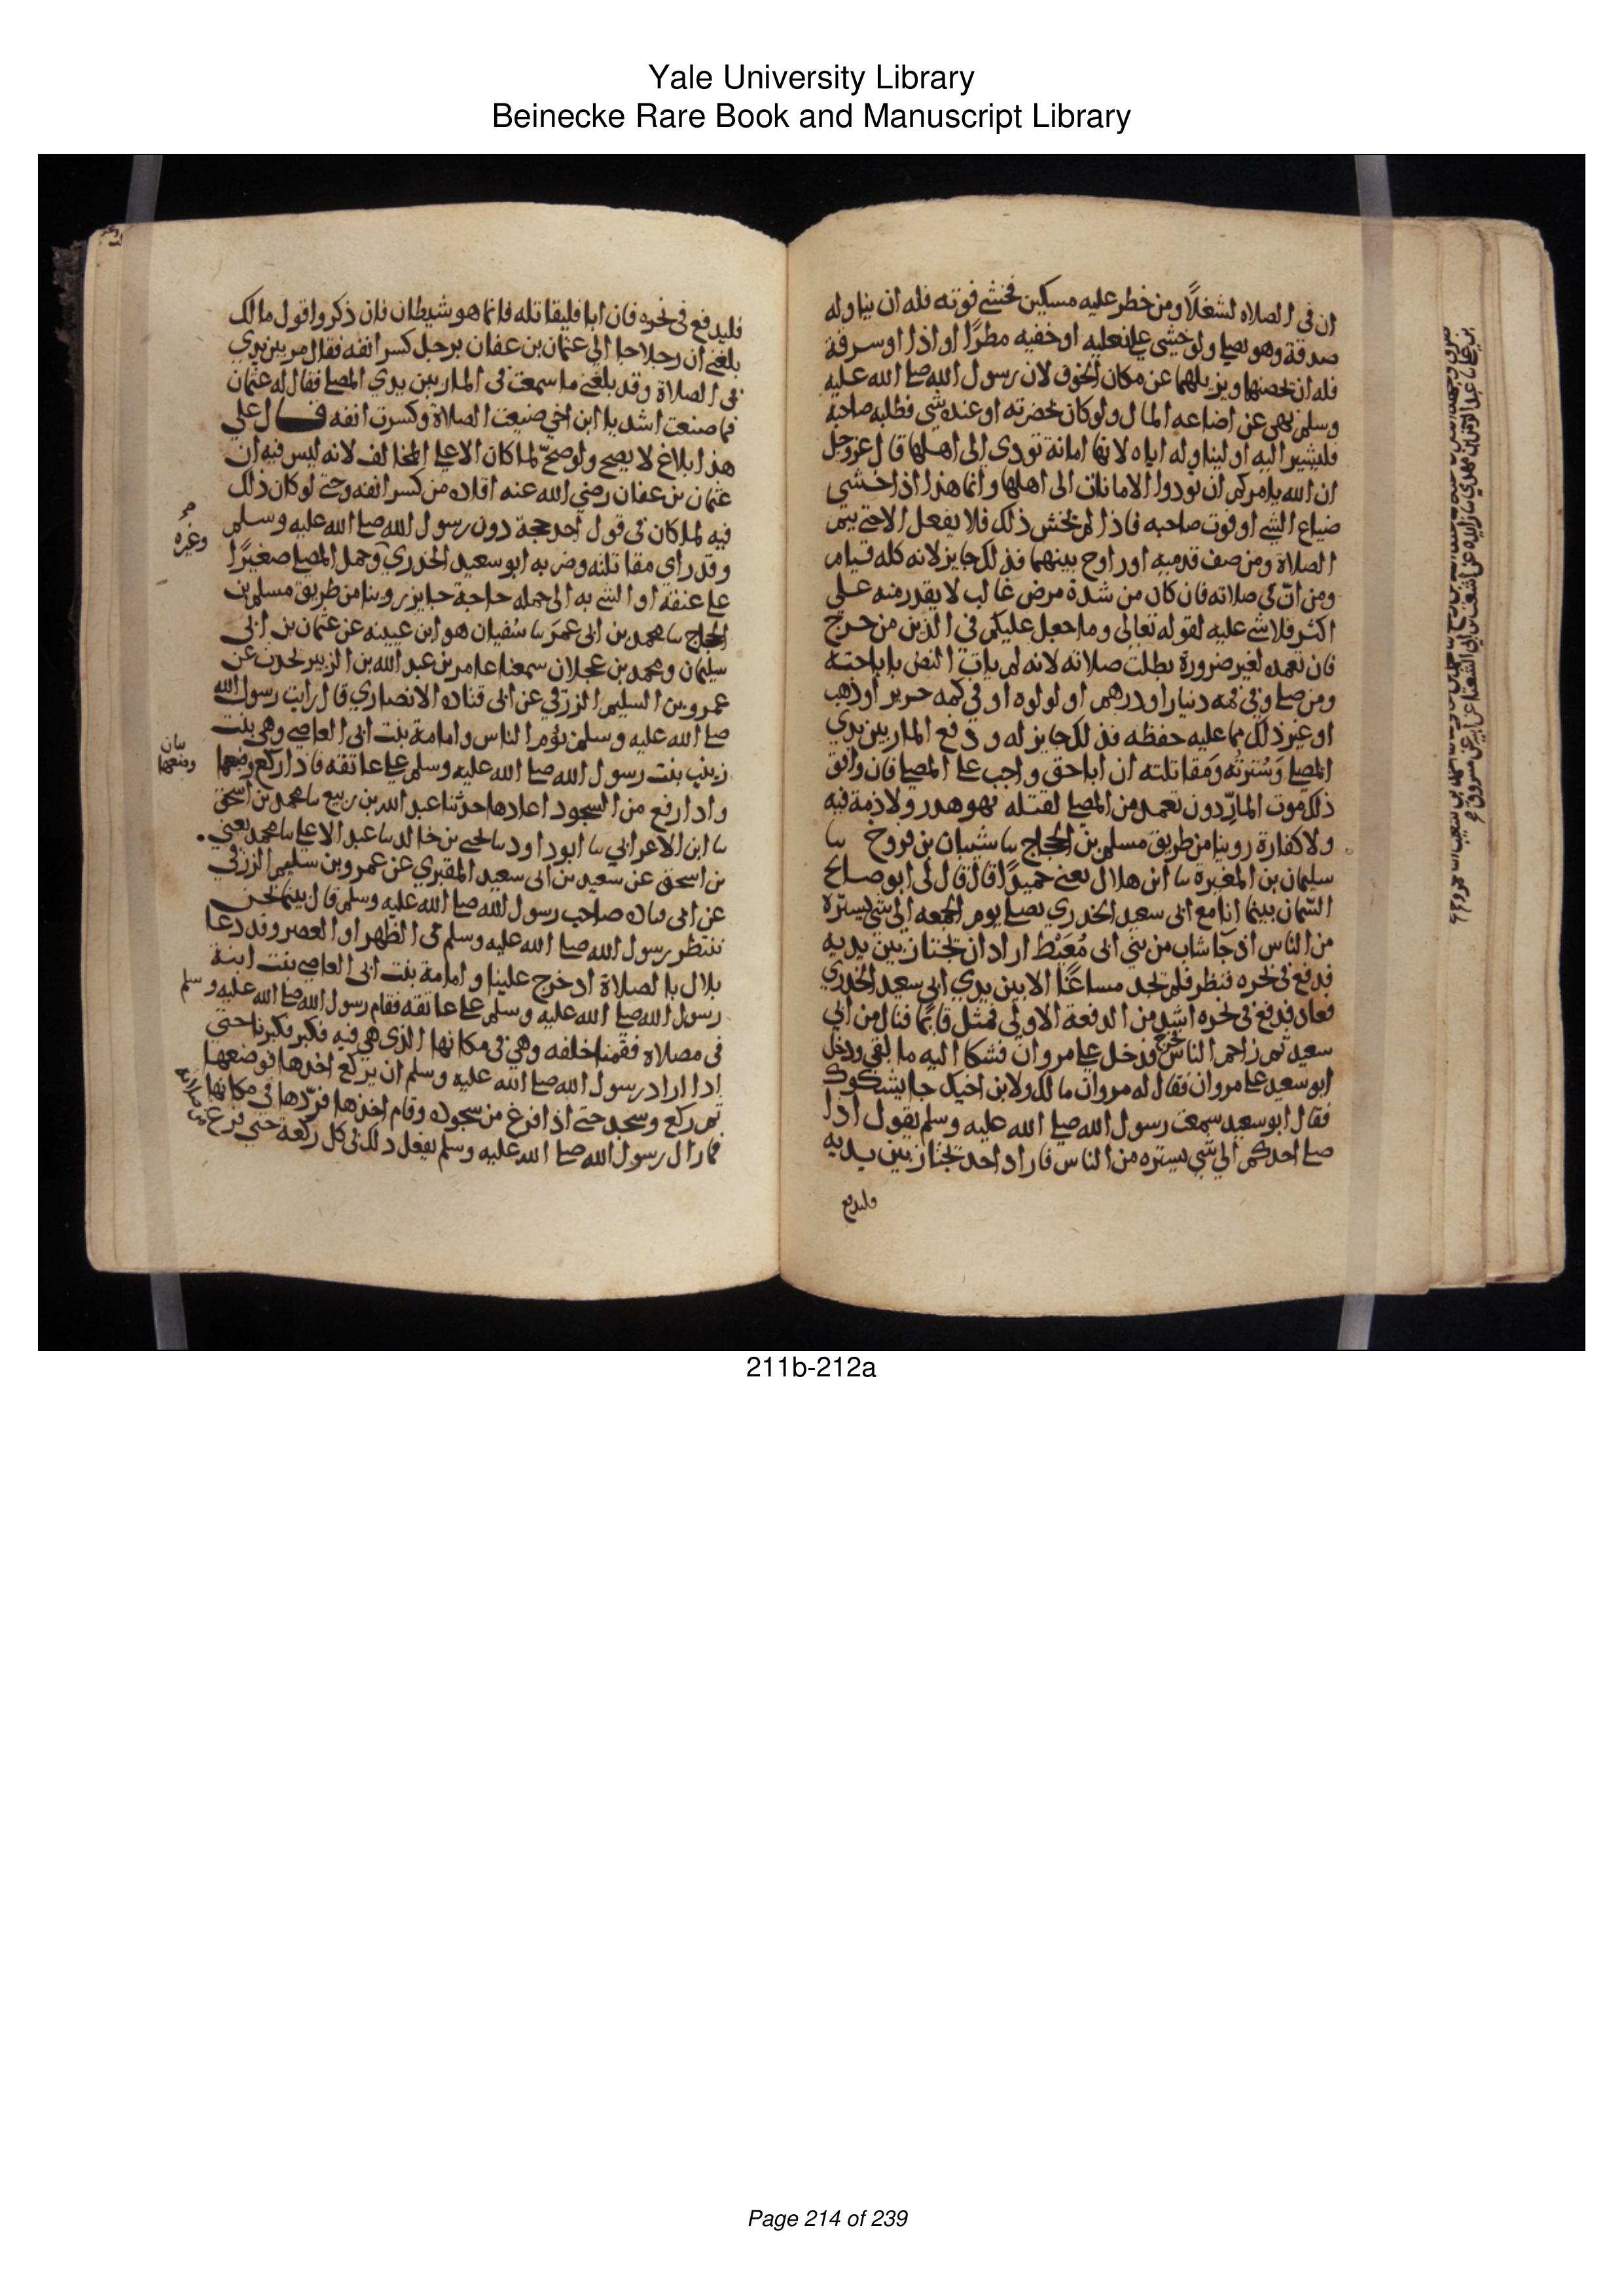 Yale University Library
Beinecke Rare Book and Manuscript Library
ان في الصلاه لشغلاً ومن خطر عليه مسكين فخشي فوته فله ان يناوله
صدقة وهو يصلي ولو خشي على نعليه او خفيه مطرًا او اذا او سرقة
فله ان يحصنها ويزيلهما عن مكان الخوف لان رسول الله صلى الله عليه
وسلم نهى عن اضاعه المال ولو كان بحضرته او عنده شي فطلبه صاحبه
فليشير اليه او ليناوله اياه لانها امانة تودي الى اهلها قال عز وجل
ان الله يامركم ان تودوا الامانات الى اهلها وانما هذا اذا خشي
ضياع الشي او فوت صاحبه فاذا لم يخش ذلك فلا يفعل الا حتى يتم
الصلاة ومن صف قدميه او راوح بينهما فذلك جايز لانه كله قيام
ومن انّ في صلاته فان كان من شدة مرض غالب لا يقدر منه على
اكثر فلا شي عليه لقوله تعالى وما جعل عليكم في الدين من حرج
فان تعمده لغير ضرورة بطلت صلاته لانه لم يات النص باباحته
ومن صلى وفي فمه دينار او درهم او لولوه او في كمه حرير او ذهب
او غير ذلك مما عليه حفظه فذلك جايز له ودفع المار بين يدي
المصلي وسُترته ومقاتلته ان ابا حق واجب على المصلي فان وافق
ذلك موت المارّ دون تعمد من المصلي لقتله فهو هدر ولا دية فيه
ولا كفارة روينا من طريق مسلم بن الحجاج نا شيبان بن فروخ نا
سليمان بن المغيرة نا ابن هلال يعني حميدًا قال قال لي ابو صالح
السّمان بينما انا مع ابي سعيد الخدري يصلي يوم الجمعه الى شي يستره
من الناس اذ جا شاب من بني ابي مُعَيْط اراد ان يجتاز بين يديه
فدفع في نحره فنظر فلم يجد مساغًا الا بين يدي ابي سعيد الخدري
فعاد فدفع في نحره اشد من الدفعة الاولى فمثل قايمًا فنال من ابي
سعيد ثم زاحم الناس فخرج فدخل على مروان فشكا اليه ما لقي ودخل
ابو سعيد على مروان فقال له مروان ما لك ولابن اخيك جا يشكوك
فقال ابو سعيد سمعت رسول الله صلى الله عليه وسلم يقول اذا
صلى احدكم الى شي يستره من الناس فاراد احد يجتاز بين يديه
فليدفع
فليدفع في نحره فان ابا فليقاتله فانما هو شيطان فان ذكروا قول مالك
بلغني ان رجلا جا الى عثمان بن عفان برجل كسر انفه فقال مر بين يدي
في الصلاة وقد بلغني ما سمعت في المار بين يدي المصلي فقال له عثمان
فما صنعت اشد يا ابن اخي ضيعت الصلاة وكسرت انفه قال علي
هذا بلاغ لا يصح ولو صحّ لما كان الا على المخالف لانه ليس فيه ان
عثمان بن عفان رضي الله عنه اقاده من كسر انفه وحتى لو كان ذلك
فيه لما كان في قول احد حجة دون رسول الله صلى الله عليه وسلم
وغيره
وقد راى مقاتلته وضربه ابو سعيد الخدري وحمل المصلي صغيرًا
على عنقه او التي به الى حمله حاجة جايز روينا من طريق مسلم بن
الحجاج نا محمد بن ابي عمر نا سُفيان هو ابن عيينه عن عثمان بن ابي
سليمان ومحمد بن عجلان سمعنا عامر بن عبد الله بن الزبير يحدث عن
عمرو بن السليم الزرقي عن ابي قتاده الانصاري قال رايت رسول الله
صلى الله عليه وسلم يؤم الناس وامامة بنت ابي العاصي وهي بنت
زينب بنت رسول الله صلى الله عليه وسلم على عاتقه فاذا ركع وضعها
بيان
وضعها
واذا رفع من السجود اعادها حدثنا عبد الله بن ربيع نا محمد بن اسحق
نا ابن الاعرابي نا ابو داود نا يحيى بن خالد نا عبد الاعلى نا محمد يعني
بن اسحق عن سعيد بن ابي سعيد المقبري عن عمرو بن سليم الزرقي
عن ابي قتاده صاحب رسول الله صلى الله عليه وسلم قال بينما نحن
ننتظر رسول الله صلى الله عليه وسلم في الظهر او العصر وقد دعا
بلال بالصلاة اذ خرج علينا وامامة بنت ابي العاصي بنت ابنة
رسول الله صلى الله عليه وسلم على عاتقه فقام رسول الله صلى الله عليه وسلم
في مصلاه فقمنا خلفه وهي في مكانها الذي هي فيه فكبر فكبرنا حتى
اذا اراد رسول الله صلى الله عليه وسلم ان يركع اخذها فوضعها
ثم ركع وسجد حتى اذا فرغ من سجوده وقام اخذها فردّها في مكانها
فما زال رسول الله صلى الله عليه وسلم يفعل ذلك في كل ركعة حتى فرغ من صلاته
211b-212a
Page 214 of 239